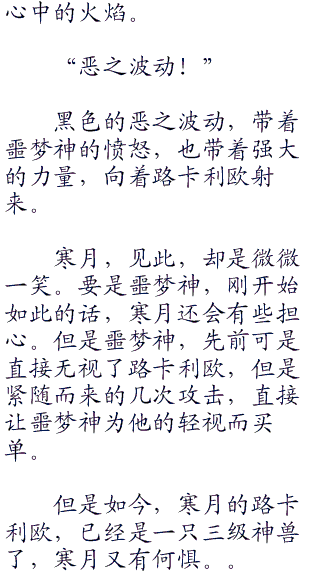 心中的火焰。
“恶之波动！”
黑色的恶之波动，带着
噩梦神的愤怒，也带着强大
的力量，向着路卡利欧射
来。
寒月，见此，却是微微
一笑。要是噩梦神，刚开始
如此的话，寒月还会有些担
心。但是噩梦神，先前可是
直接无视了路卡利欧，但是
紧随而来的几次攻击，直接
让噩梦神为他的轻视而买
单。
但是如今，寒月的路卡
利欧，已经是一只三级神兽
了，寒月又有何惧。。